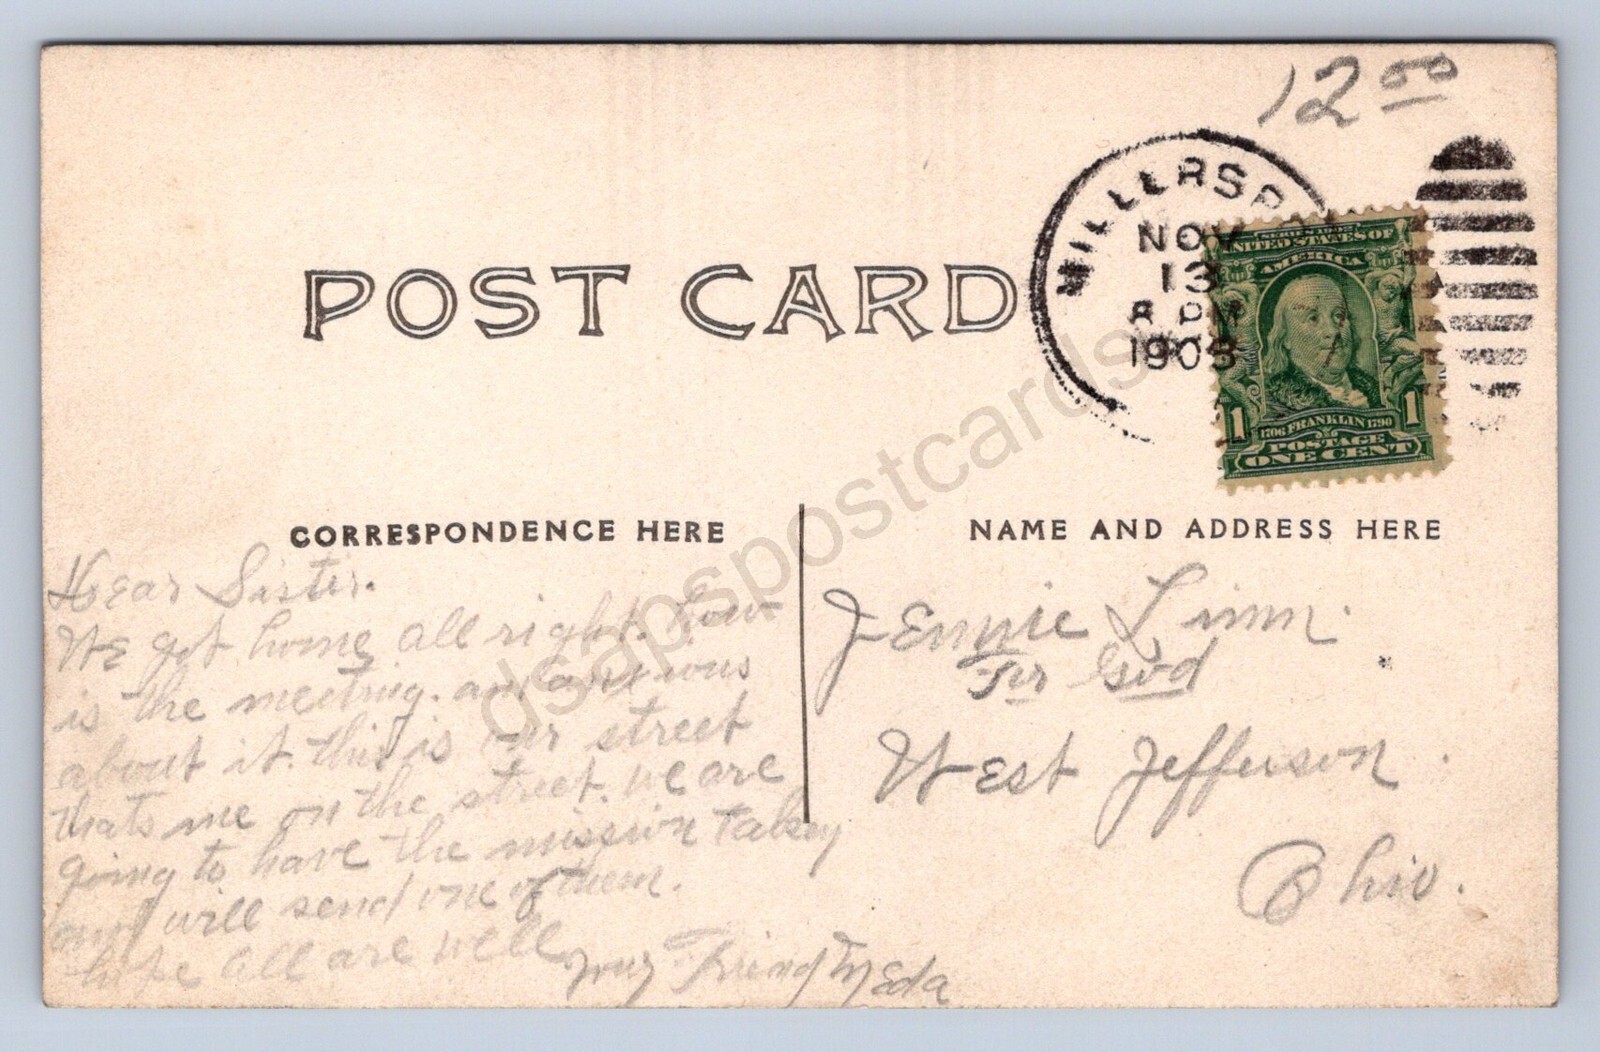 12 00
MILLERSB
NOV
13
PM
1908
UNITED STATES OF
AMERICA
1 1706 FRANKLIN 1790 1
POSTAGE
ONE CENT
POST CARD
CORRESPONDENCE HERE
NAME AND ADDRESS HERE
Dear Sister.
We got home all right. how
is the meeting. am anxious
about it. this is our street
thats me on the street. we are
going to have the mission taken
and will send one of them.
hope all are well
your Friend Meda
Jennie Linn.
For God
West Jefferson
Ohio.
dsapspostcards